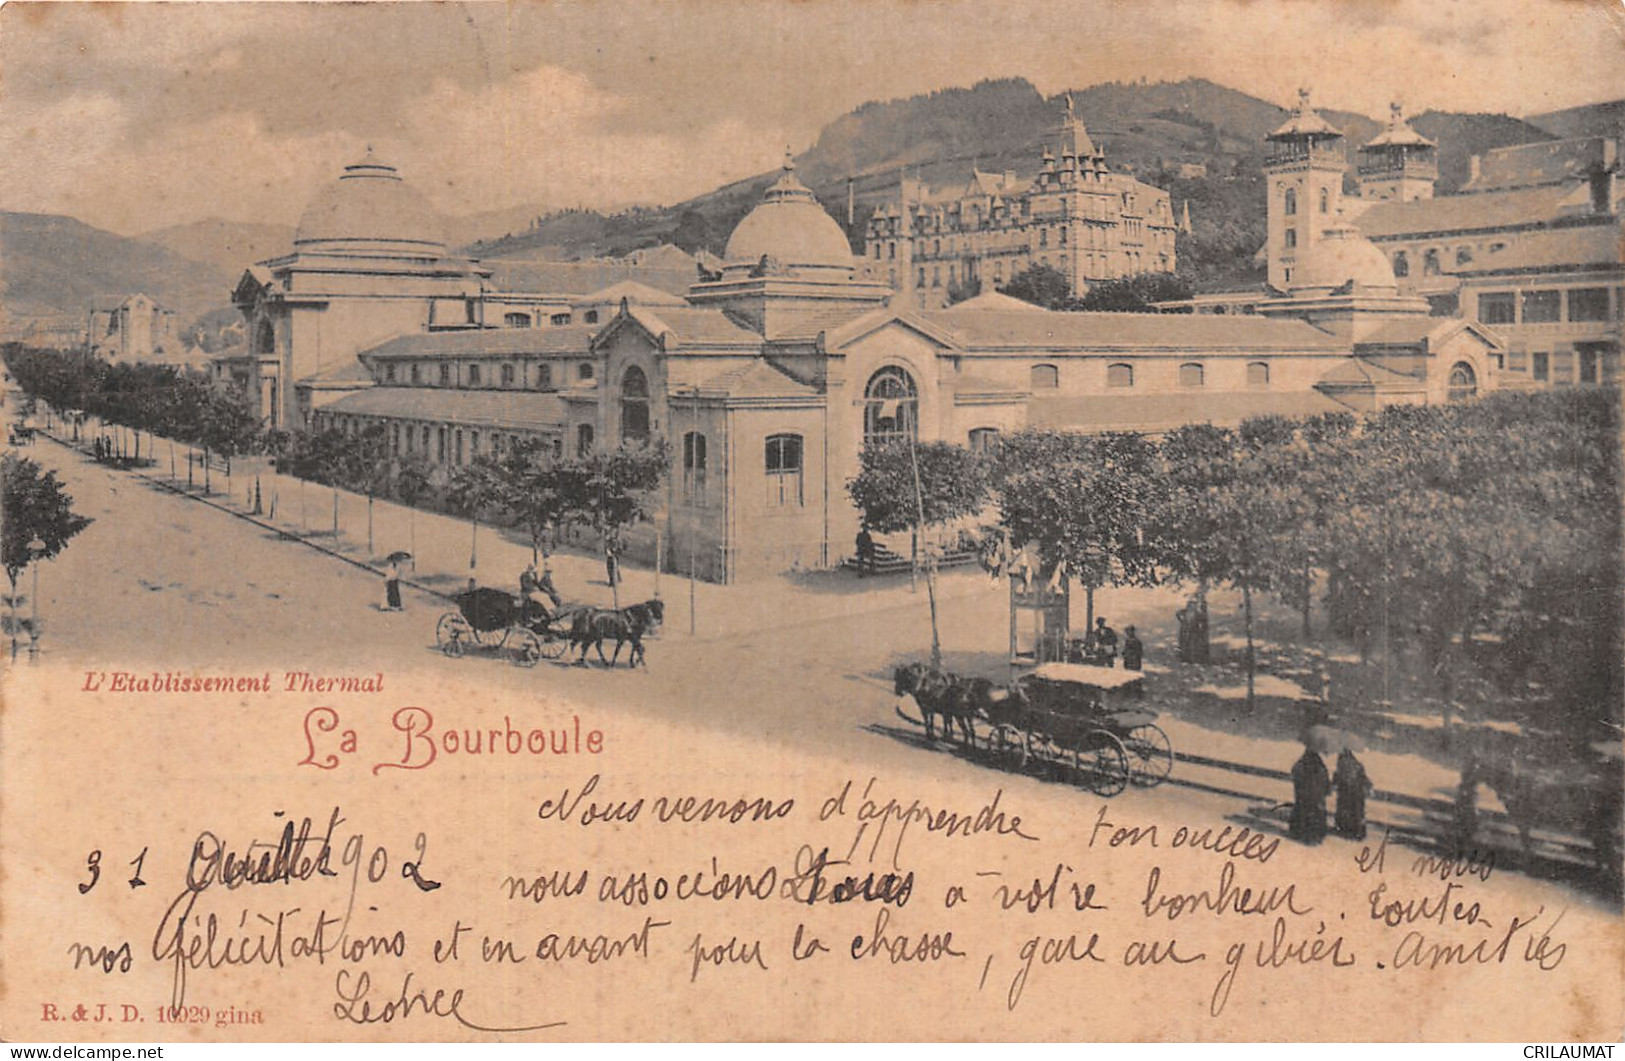 L'Etablissement Thermal
La Bourboule
Nous venons d'apprendre ton succes et nous
31 Juillet 902 nous associons tous à votre bonheur. Toutes
nos félicitations et en avant pour la chasse, gare au gibier. Amitiés
Léonce
R. & J. D. 10929 gina
www.delcampe.net
CRILAUMAT